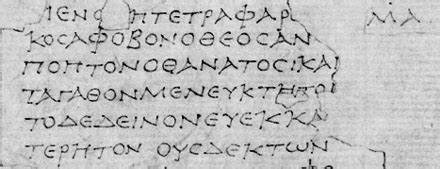 ΜΕΝΟ ΗΤΕΤΡΑΦΑΡ ΜΑ
ΚΟϹΑΦΟΒΟΝΟΘΕΟϹΑΝ
ΠΟΠΤΟΝΟΘΑΝΑΤΟϹΚΑΙ
ΤΑΓΑΘΟΝΜΕΝΕΥΚΤΗΤΟΙ
ΤΟΔΕΔΕΙΝΟΝΕΥΕΚΚΑ
ΤΕΡΗΤΟΝ ΟΥϹΔΕΚΤΩΝ